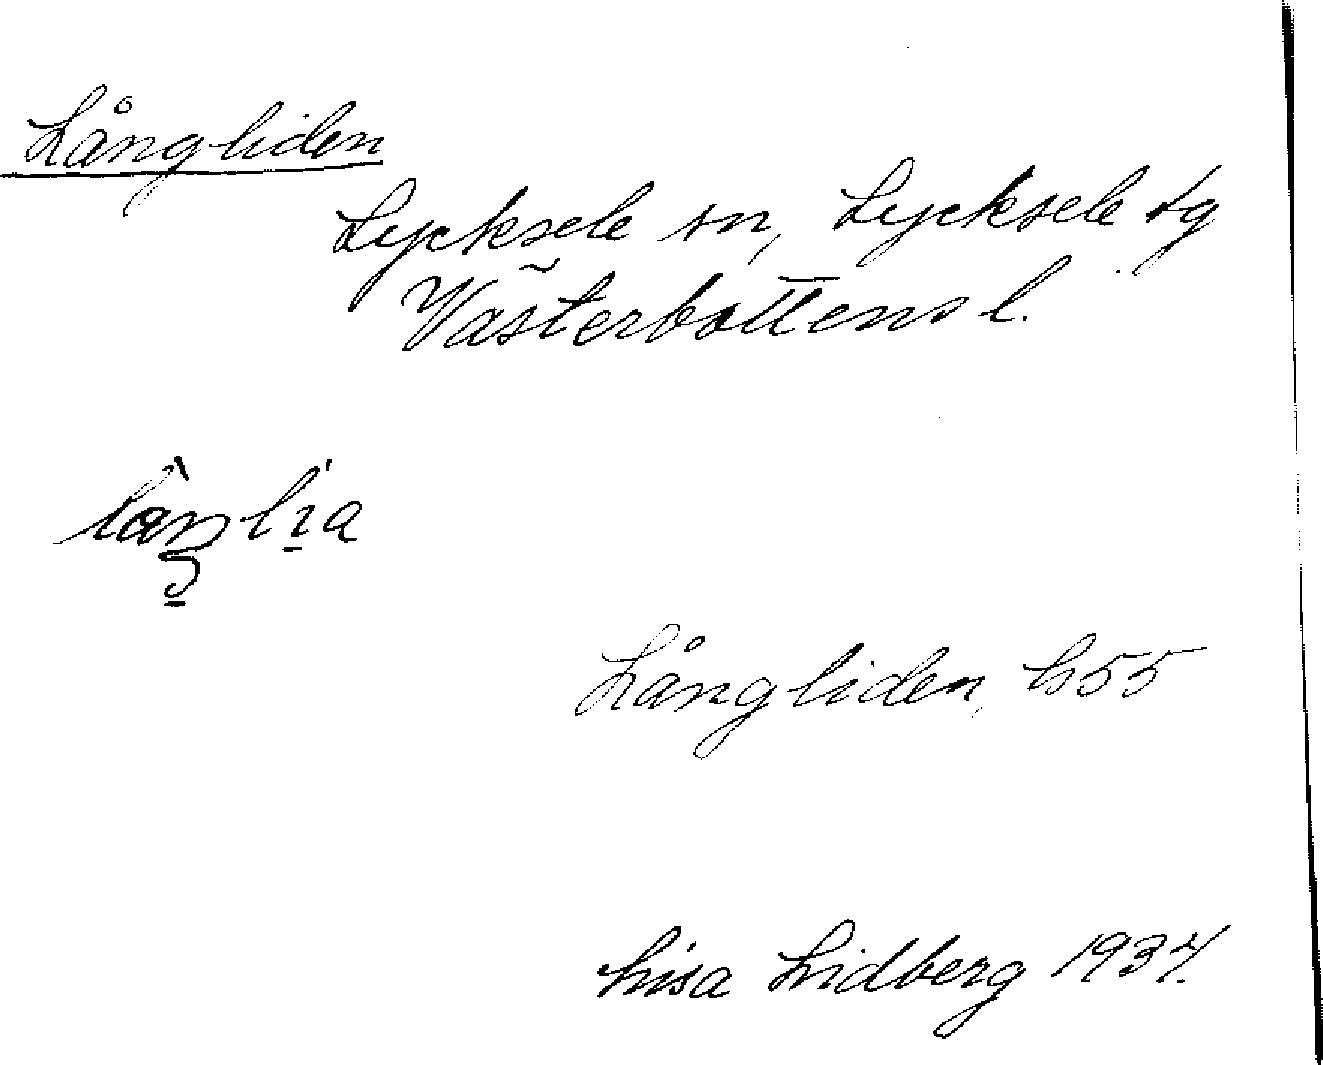 Långliden
Lycksele sn, Lycksele tg
Västerbottens l.
Långliden, h55
Lisa Lidberg 1937.